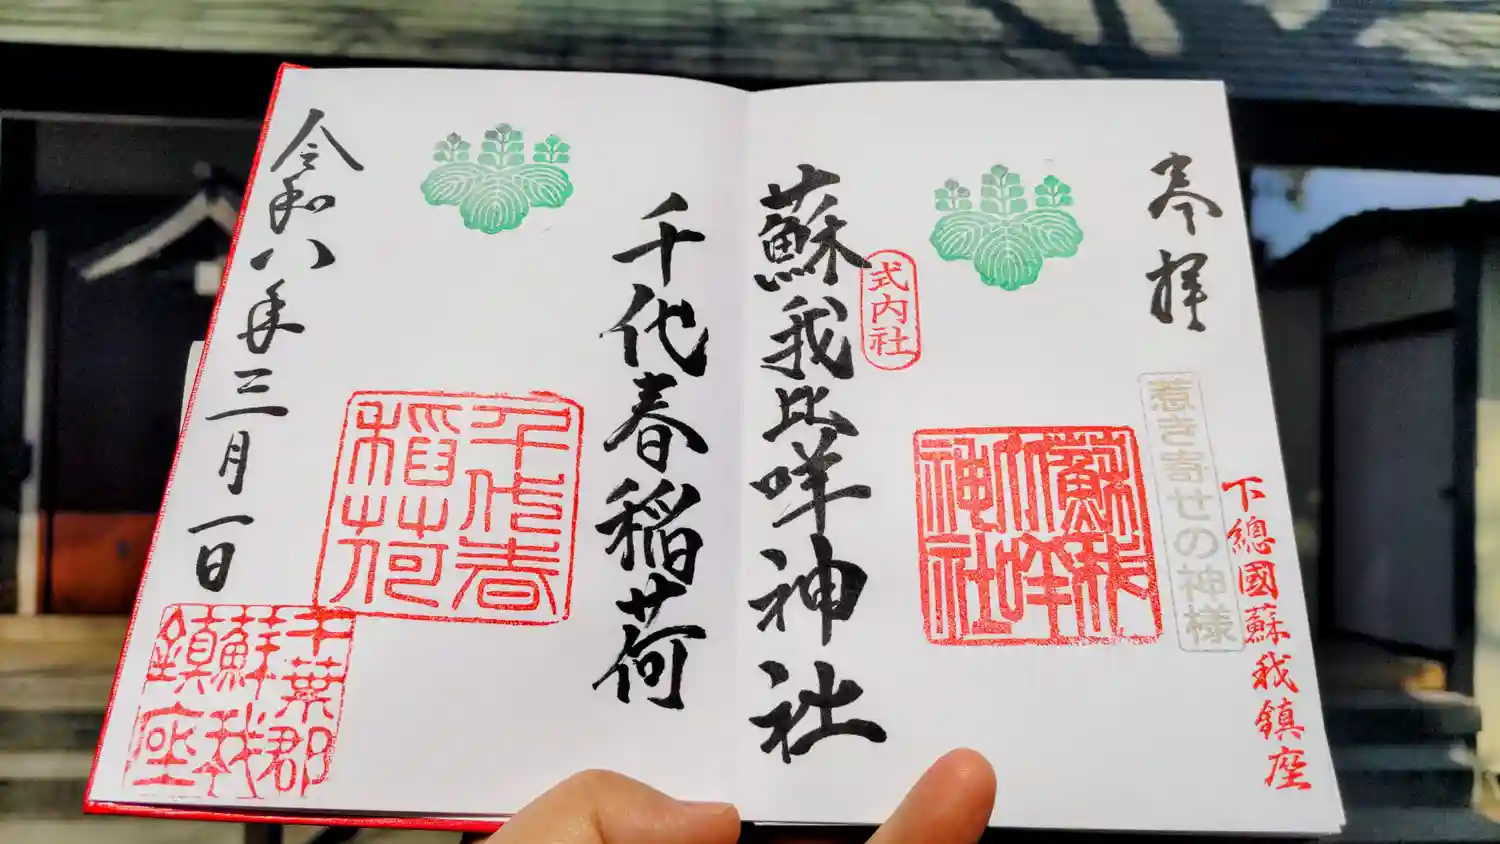 奉拝
下總國蘇我鎮座
惹き寄せの神様
式内社
蘇我比咩神社
蘇我比咩神社
千代春稲荷
千代春稲荷
令和八年三月一日
千葉郡蘇我鎮座